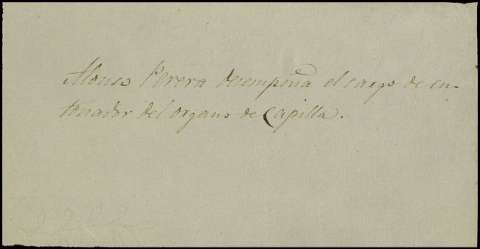 Alonso Perera desempeña el cargo de en-
tonador del organo de Capilla.